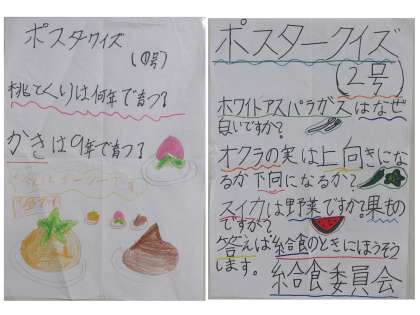 ポスタクイズ
桃とくりは何年で育つ?
かきは9年で育つ?
ポスタークイズ
(2号)
ホワイトアスパラガスはなぜ
白いですか?
オクラの実は上向きにな
るか下向になるか?
スイカは野菜ですか?果もの
ですか?
答えは給食のときにほうそう
します。
給食委員会